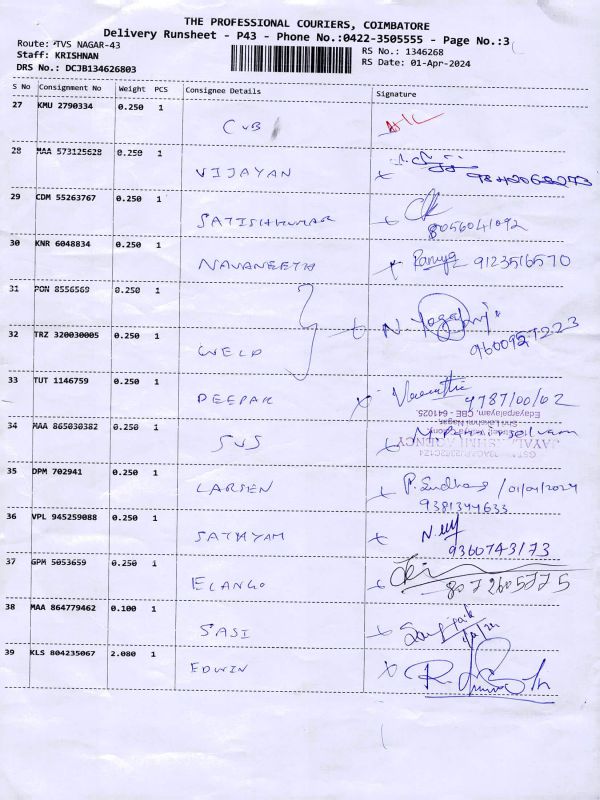 THE PROFESSIONAL COURIERS, COIMBATORE
Delivery Runsheet - P43 - Phone No.:0422-3505555 - Page No.:3
Route: TVS NAGAR-43
Staff: KRISHNAN
DRS No.: DCJB134626803
RS No.: 1346268
RS Date: 01-Apr-2024
S No Consignment No Weight PCS Consignee Details Signature
27 KMU 2790334 0.250 1 CVB
28 MAA 573125628 0.250 1 VIJAYAN
29 CDM 55263767 0.250 1 SATISHKUMAR 8056041092
30 KNR 6048834 0.250 1 NAVANEETH Ramya 9123516570
31 PON 8556569 0.250 1
32 TRZ 320030005 0.250 1 WELD
33 TUT 1146759 0.250 1 DEEPAK 9787100102
34 MAA 865030382 0.250 1 SVS
Edayarpalayam, CBE - 641025.
35 DPM 702941 0.250 1 LARSEN 01/04/2024
9381344633
36 VPL 945259088 0.250 1 SATHYAM 9360743173
37 GPM 5053659 0.250 1 ELANGO
38 MAA 864779462 0.100 1 SASI
39 KLS 804235067 2.080 1 EDWIN